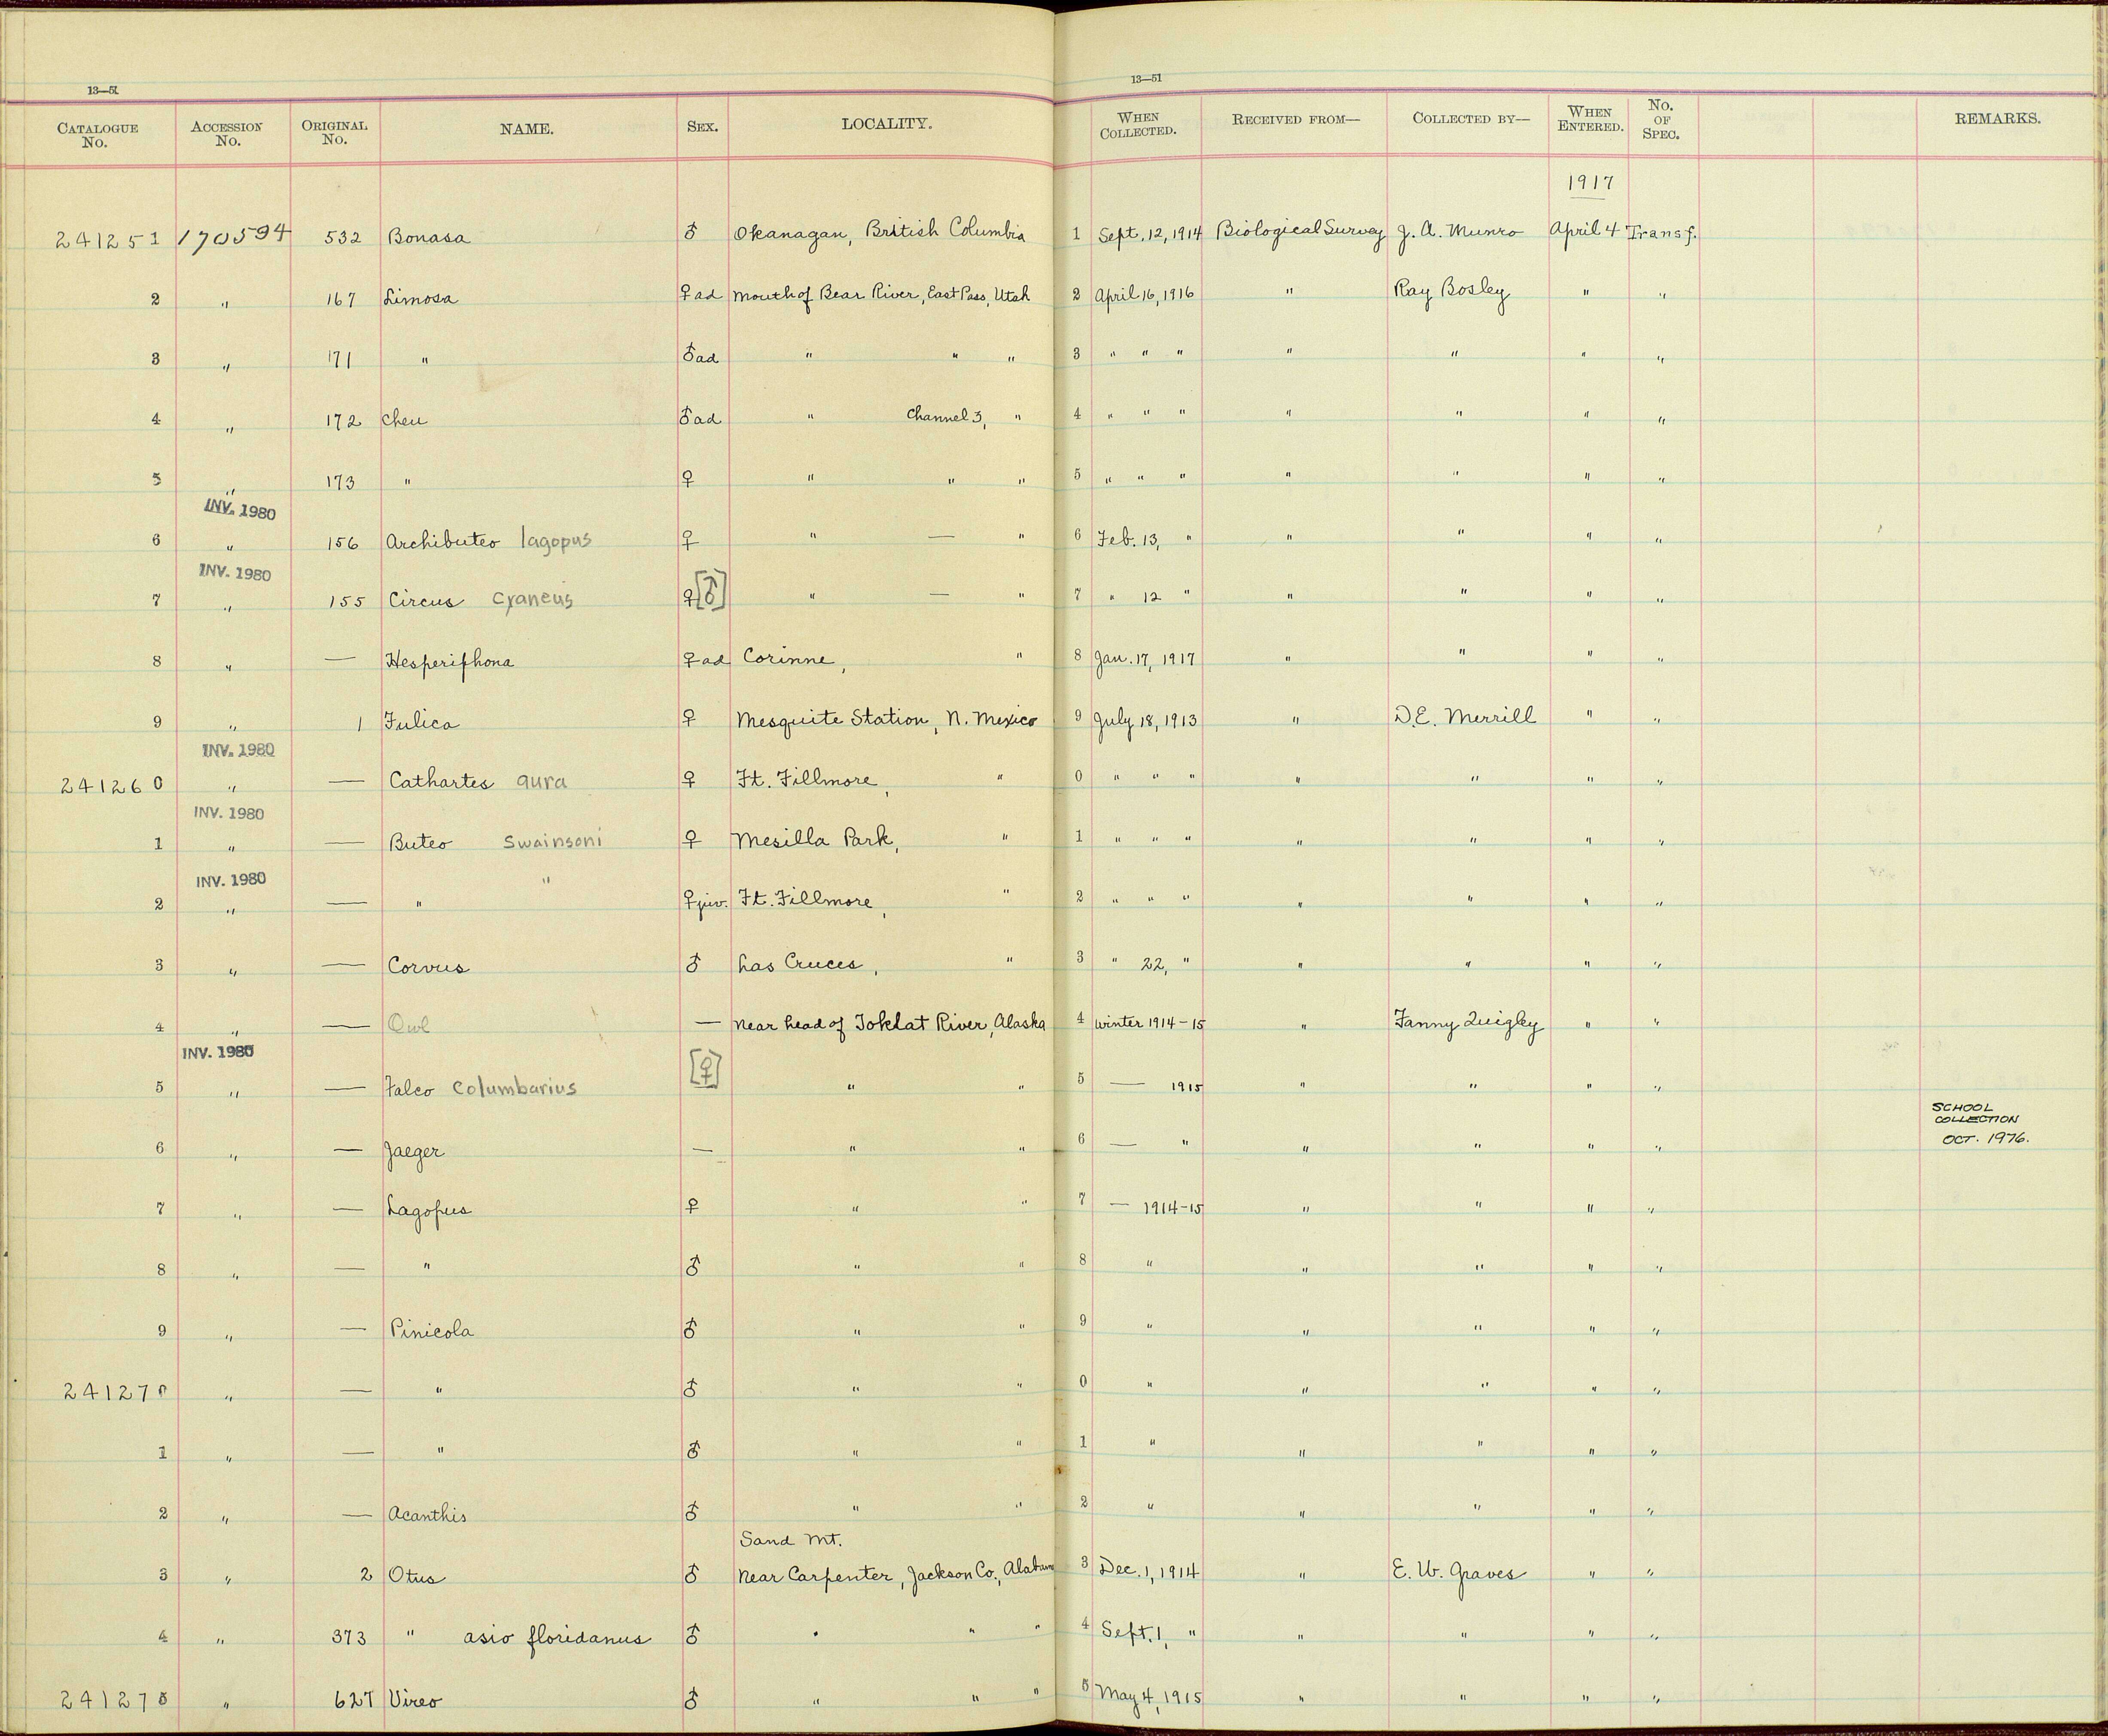 13—51
13—51
CATALOGUE No. ACCESSION No. ORIGINAL No. NAME. SEX. LOCALITY. WHEN COLLECTED. RECEIVED FROM— COLLECTED BY— WHEN ENTERED. No. OF SPEC. REMARKS.
1917
241251 170594 532 Bonasa ♂ Okanagan, British Columbia 1 Sept. 12, 1914 Biological Survey J. A. Munro April 4 Transf.
2 " 167 Limosa ♀ ad Mouth of Bear River, East Pass, Utah 2 April 16, 1916 " Ray Bosley " "
3 " 171 " ♂ ad " " " 3 " " " " " " "
4 " 172 Chen ♂ ad " Channel 3, " 4 " " " " " " "
5 " 173 " ♀ " " " 5 " " " " " " "
INV. 1980
6 " 156 Archibuteo lagopus ♀ " — " 6 Feb. 13, " " " " "
INV. 1980
7 " 155 Circus cyaneus ♀ [♂] " — " 7 " 12 " " " " "
8 " — Hesperiphona ♀ ad Corinne, " 8 Jan. 17, 1917 " " " "
9 " 1 Fulica ♀ Mesquite Station, N. Mexico 9 July 18, 1913 " D.E. Merrill " "
INV. 1980
241260 " — Cathartes aura ♀ Ft. Fillmore, " 0 " " " " " " "
INV. 1980
1 " — Buteo swainsoni ♀ Mesilla Park, " 1 " " " " " " "
INV. 1980 "
2 " — " ♀ juv. Ft. Fillmore, " 2 " " " " " " "
3 " — Corvus ♂ Las Cruces, " 3 " 22, " " " " "
4 " — Owl — Near head of Toklat River, Alaska 4 Winter 1914-15 " Fanny Quigley " "
INV. 1980
5 " — Falco columbarius [♀] " " 5 — 1915 " " " "
SCHOOL
COLLECTION
OCT. 1976.
6 " — Jaeger — " " 6 — " " " " "
7 " — Lagopus ♀ " " 7 — 1914-15 " " " "
8 " — " ♂ " " 8 " " " " "
9 " — Pinicola ♂ " " 9 " " " " "
241270 " — " ♂ " " 0 " " " " "
1 " — " ♂ " " 1 " " " " "
2 " — Acanthis ♂ " " 2 " " " " "
Sand Mt.
3 " 2 Otus ♂ Near Carpenter, Jackson Co., Alabama 3 Dec. 1, 1914 " E. W. Graves " "
4 " 373 " asio floridanus ♂ " " " 4 Sept. 1, " " " " "
241275 " 627 Vireo ♂ " " " 5 May 4, 1915 " " " "